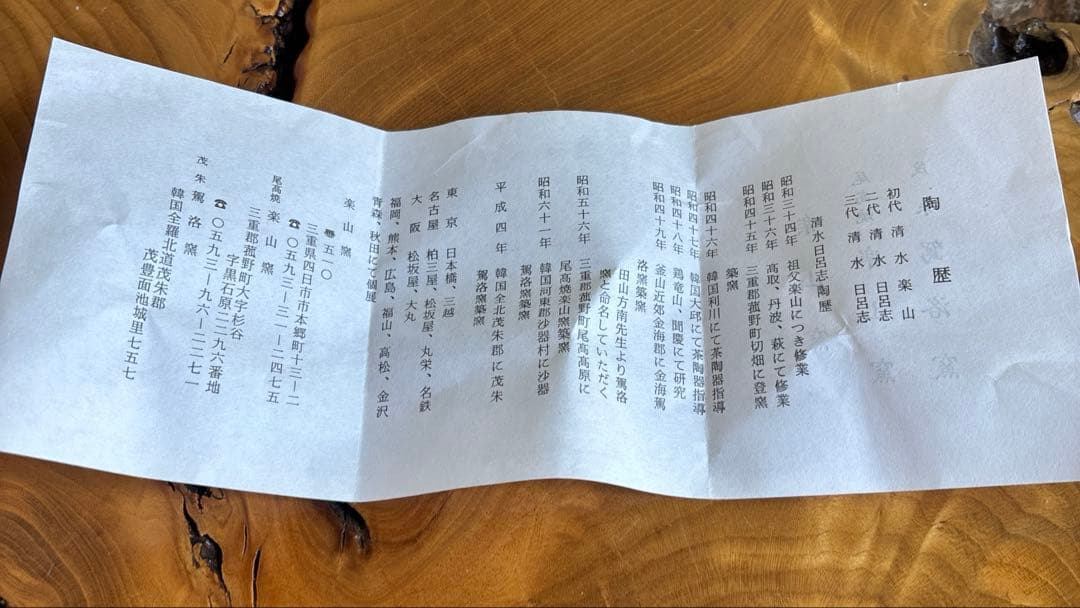 陶歴
初代 清水 楽山
二代 清水 日呂志
三代 清水 日呂志
清水日呂志陶歴
昭和三十四年 祖父楽山につき修業
昭和三十六年 高取、丹波、萩にて修業
昭和四十五年 三重郡菰野町切畑に登窯
築窯
昭和四十六年 韓国利川にて茶陶器指導
昭和四十七年 韓国大邱にて茶陶器指導
昭和四十八年 鶏竜山、聞慶にて研究
昭和四十九年 釜山近郊金海郡に金海駕
洛窯築窯
田山方南先生より駕洛
窯と命名していただく
昭和五十六年 三重郡菰野町尾髙髙原に
尾髙焼楽山窯築窯
昭和六十一年 韓国河東郡沙器村に沙器
駕洛窯築窯
平成四年 韓国全北茂朱郡に茂朱
駕洛窯築窯
東京 日本橋、三越
名古屋 柏三屋、松坂屋、丸栄、名鉄
大阪 松坂屋、大丸
福岡、熊本、広島、福山、高松、金沢
青森、秋田にて個展
楽山窯
五一〇
三重県四日市市本郷町十三ー二
☎〇五九三ー三一ー二四七五
尾髙焼 楽山窯
三重郡菰野町大字杉谷
字黒石原二二九六番地
☎〇五九三ー九六ー二二七一
茂朱駕洛窯
韓国全羅北道茂朱郡
茂豊面池城里七五七